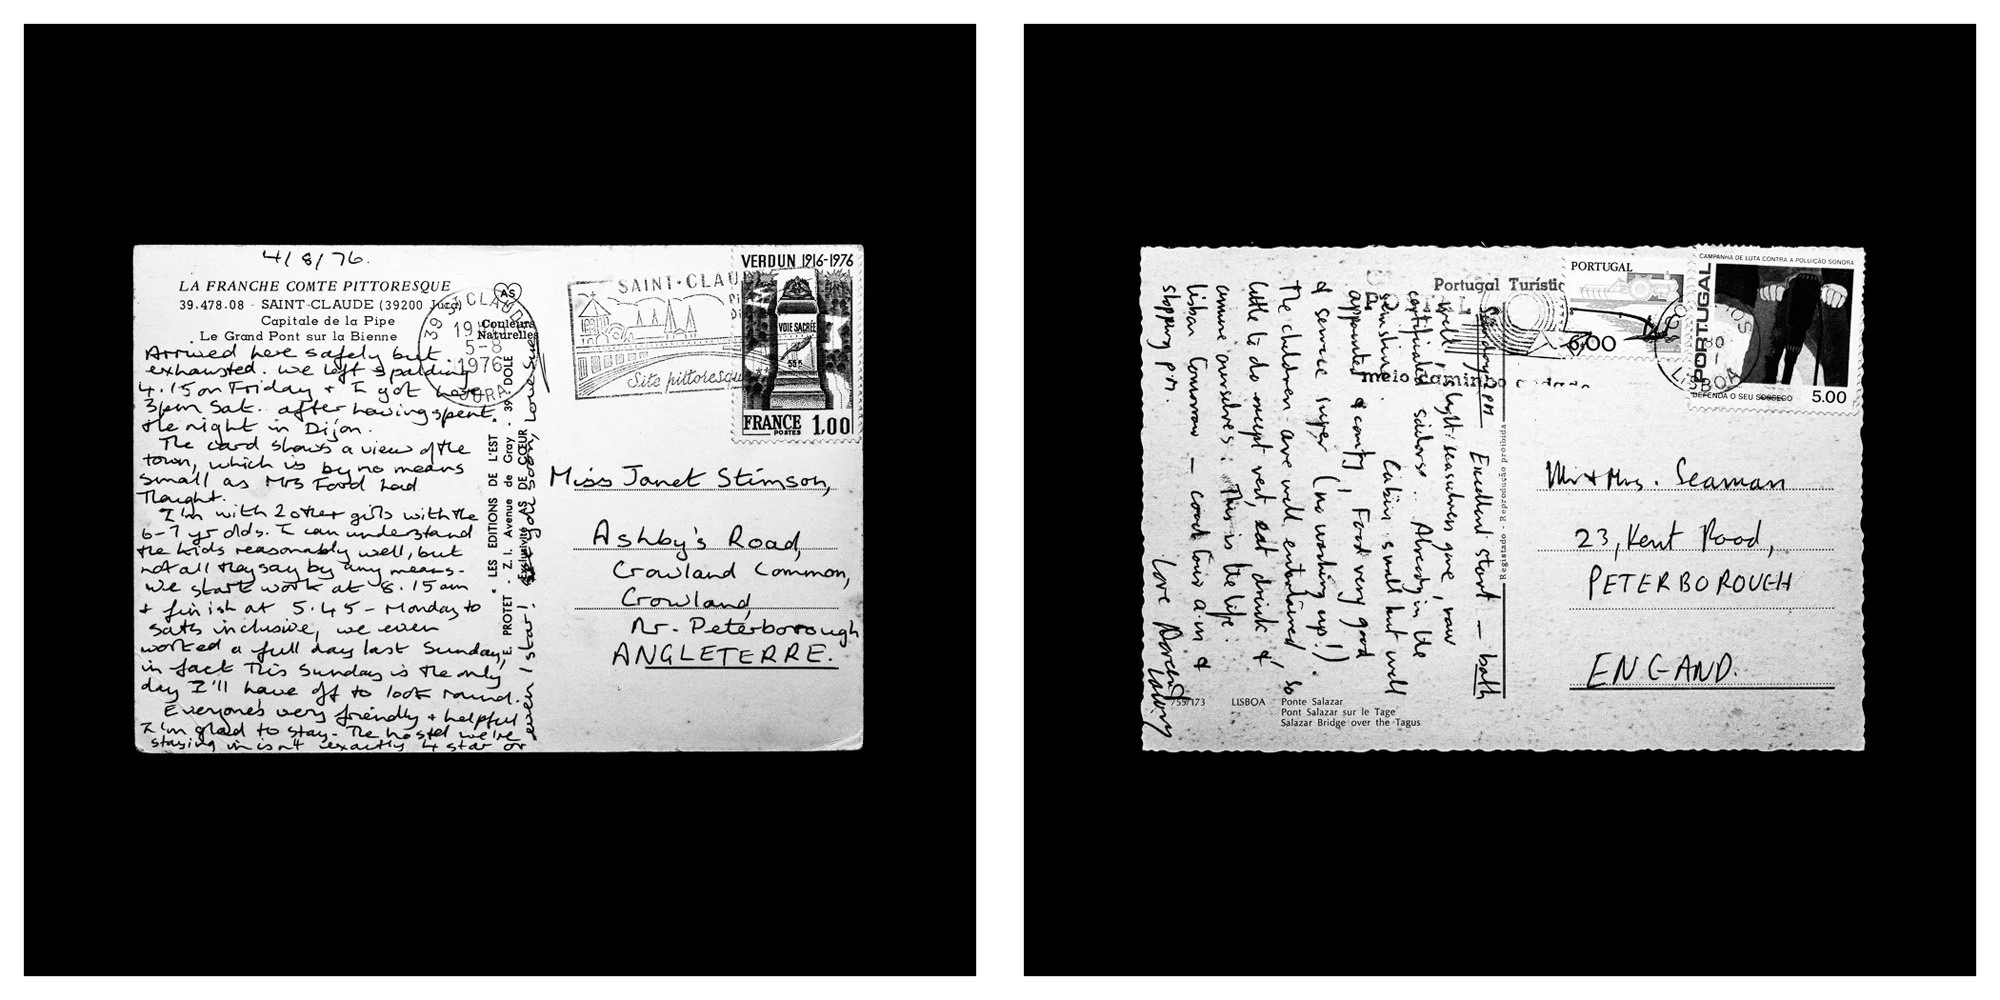 4/8/76.
LA FRANCHE COMTE PITTORESQUE
39.478.08 - SAINT-CLAUDE (39200 Jura)
Capitale de la Pipe
Le Grand Pont sur la Bienne
AS
Couleurs
Naturelles
Arrived here safely but
exhausted. We left Spalding
4.15 on Friday & I got here
3pm Sat. after having spent
the night in Dijon.
The card shows a view of the
town, which is by no means
small as Mrs Ford had
thought.
I'm with 2 other girls with the
6-7 yr olds. I can understand
the kids reasonably well, but
not all they say by any means.
We start work at 8.15am
& finish at 5.45 - Monday to
Sats inclusive, we even
worked a full day last Sunday,
in fact this Sunday is the only
day I'll have off to look round.
Everyone's very friendly & helpful
I'm glad to stay. The hostel we're
staying in isn't exactly 4 star or
even 1 star!
See you soon, love Sue
E. PROTET - Z.I. Avenue de Gray - 39 DOLE
* LES EDITIONS DE L'EST *
Exclusivité AS DE CŒUR
39
19
5-8
1976
JURA
SAINT-CLAU
Site pittoresqu
VERDUN 1916-1976
VOIE SACRÉE
FRANCE
POSTES
1,00
Miss Janet Stimson,
Ashby's Road,
Crowland Common,
Crowland,
Nr. Peterborough
ANGLETERRE.
Portugal Turístic
PORTUGAL
6.00
CAMPANHA DE LUTA CONTRA A POLUIÇÃO SONORA
PORTUGAL
DEFENDA O SEU SOSSEGO
5.00
LISBOA
Sunday pm Excellent start — both
well,
certificated sailors. Already in the
sunshine. Cabin small but well
appointed & comfy, Food very good
& service super (no washing up!).
The children are well entertained, so
little to do except rest, eat, drink &
amuse ourselves. This is the life.
Lisbon tomorrow — coach tour a.m &
shopping p.m.
Love
Registado - Reprodução proibida
755/173
LISBOA
Ponte Salazar
Pont Salazar sur le Tage
Salazar Bridge over the Tagus
Mr & Mrs. Seaman
23, Kent Road,
PETERBOROUGH
ENGAND.